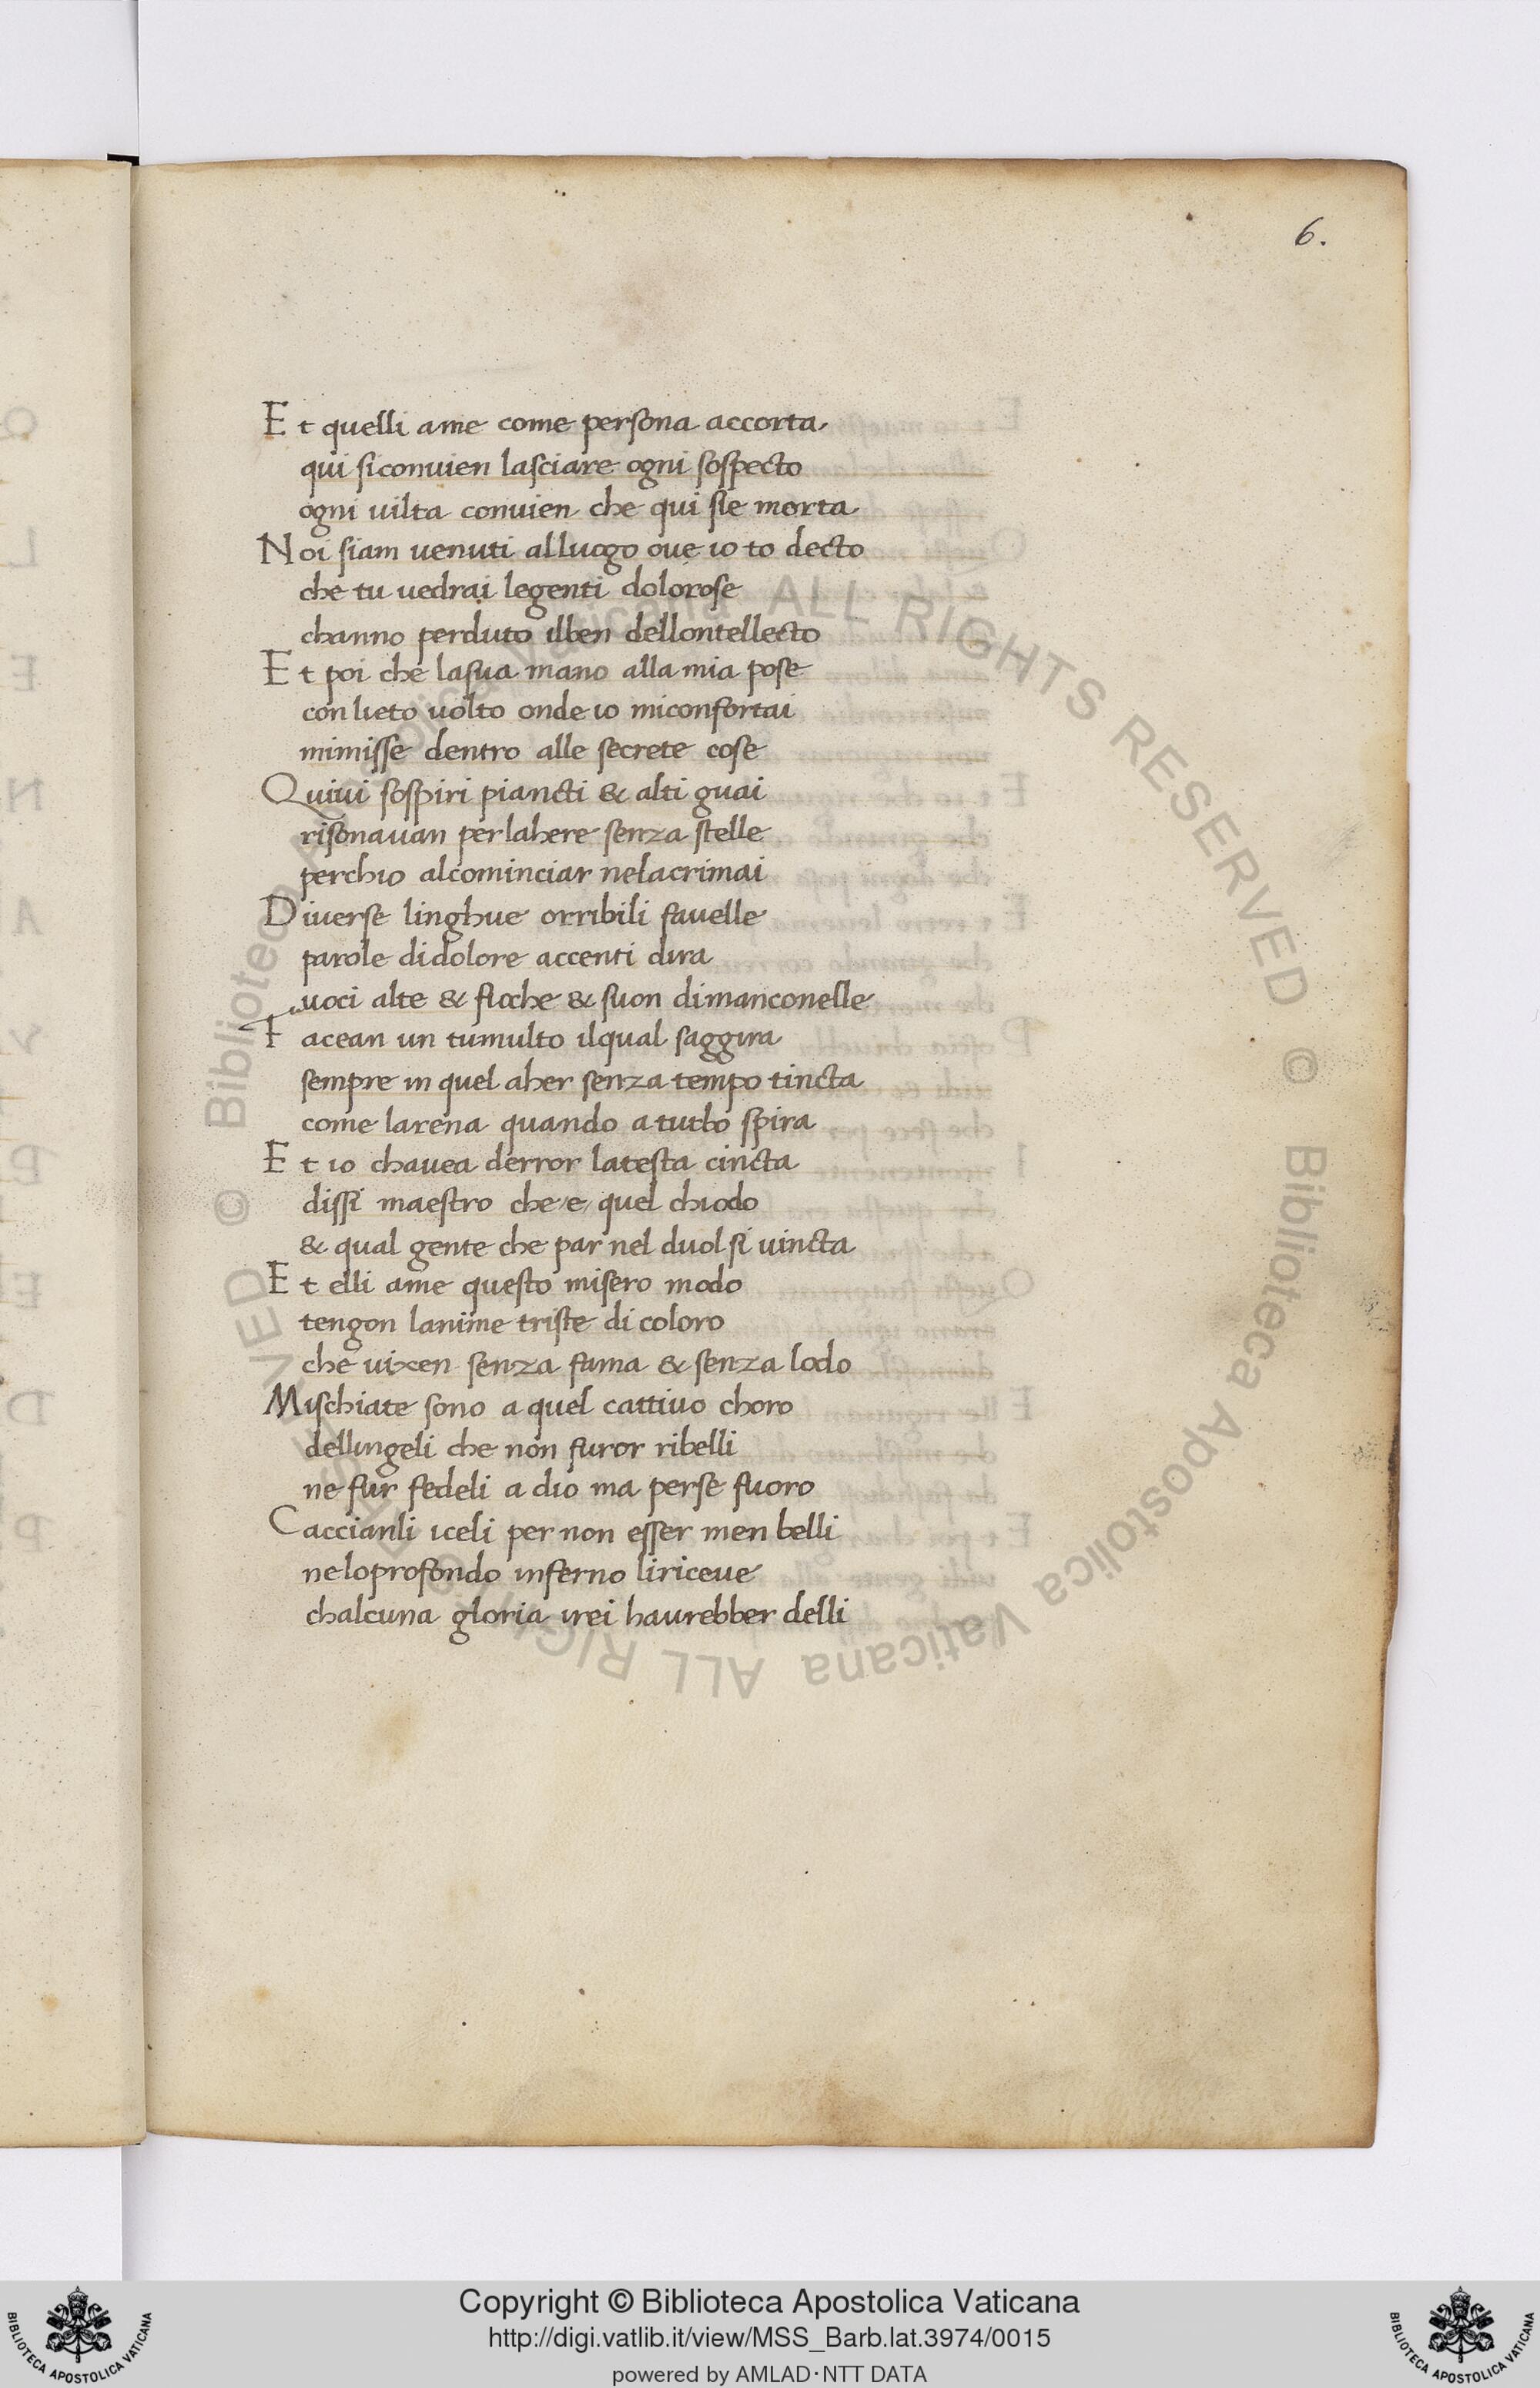 6.
Et quelli ame come persona accorta,
qui siconuien lasciare ogni sospecto
ogni uilta conuien che qui sie morta
Noi siam uenuti alluogo oue io to decto
che tu uedrai legenti dolorose
channo perduto ilben dellontellecto
Et poi che lasua mano alla mia pose
con lieto uolto onde io miconfortai
mimisse dentro alle secrete cose
Quiui sospiri piancti & alti guai
risonauan perlahere senza stelle
perchio alcominciar nelacrimai
Diuerse linghue orribili fauelle
parole didolore accenti dira
uoci alte & fioche & suon dimanconelle
Facean un tumulto ilqual saggira
sempre in quel aher senza tempo tincta
come larena quando a turbo spira
Et io chauea derror latesta cincta
dissi maestro che e quel chiodo
& qual gente che par nel duol si uincta
Et elli ame questo misero modo
tengon lanime triste di coloro
che uixen senza fama & senza lodo
Mischiate sono a quel cattiuo choro
dellingeli che non furor ribelli
ne fur fedeli a dio ma perse fuoro
Caccianli iceli per non esser men belli
neloprofondo inferno liriceue
chalcuna gloria irei haurebber delli
© Biblioteca Apostolica Vaticana ALL RIGHTS RESERVED © Biblioteca Apostolica Vaticana ALL RIGHTS RESERVED
Copyright © Biblioteca Apostolica Vaticana
http://digi.vatlib.it/view/MSS_Barb.lat.3974/0015
powered by AMLAD·NTT DATA
BIBLIOTECA APOSTOLICA VATICANA
BIBLIOTECA APOSTOLICA VATICANA